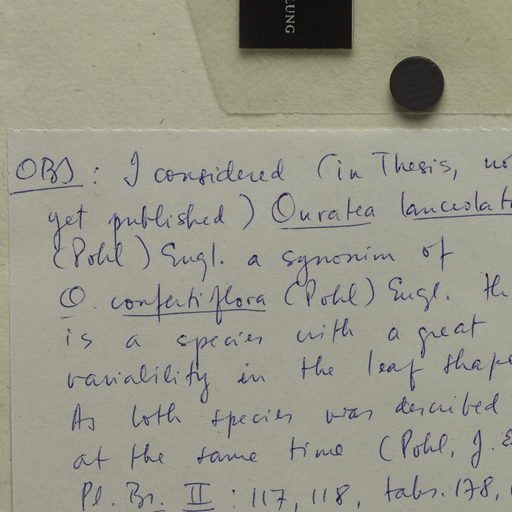 LUNG
OBS: I considered (in Thesis, no
yet published) Ouratea lanceolat
(Pohl) Engl. a synonim of
O. confertiflora (Pohl) Engl. th
is a species with a great
variability in the leaf shape
As both species was described
at the same time (Pohl, J.E
Pl. Br. II: 117, 118, tabs. 178,